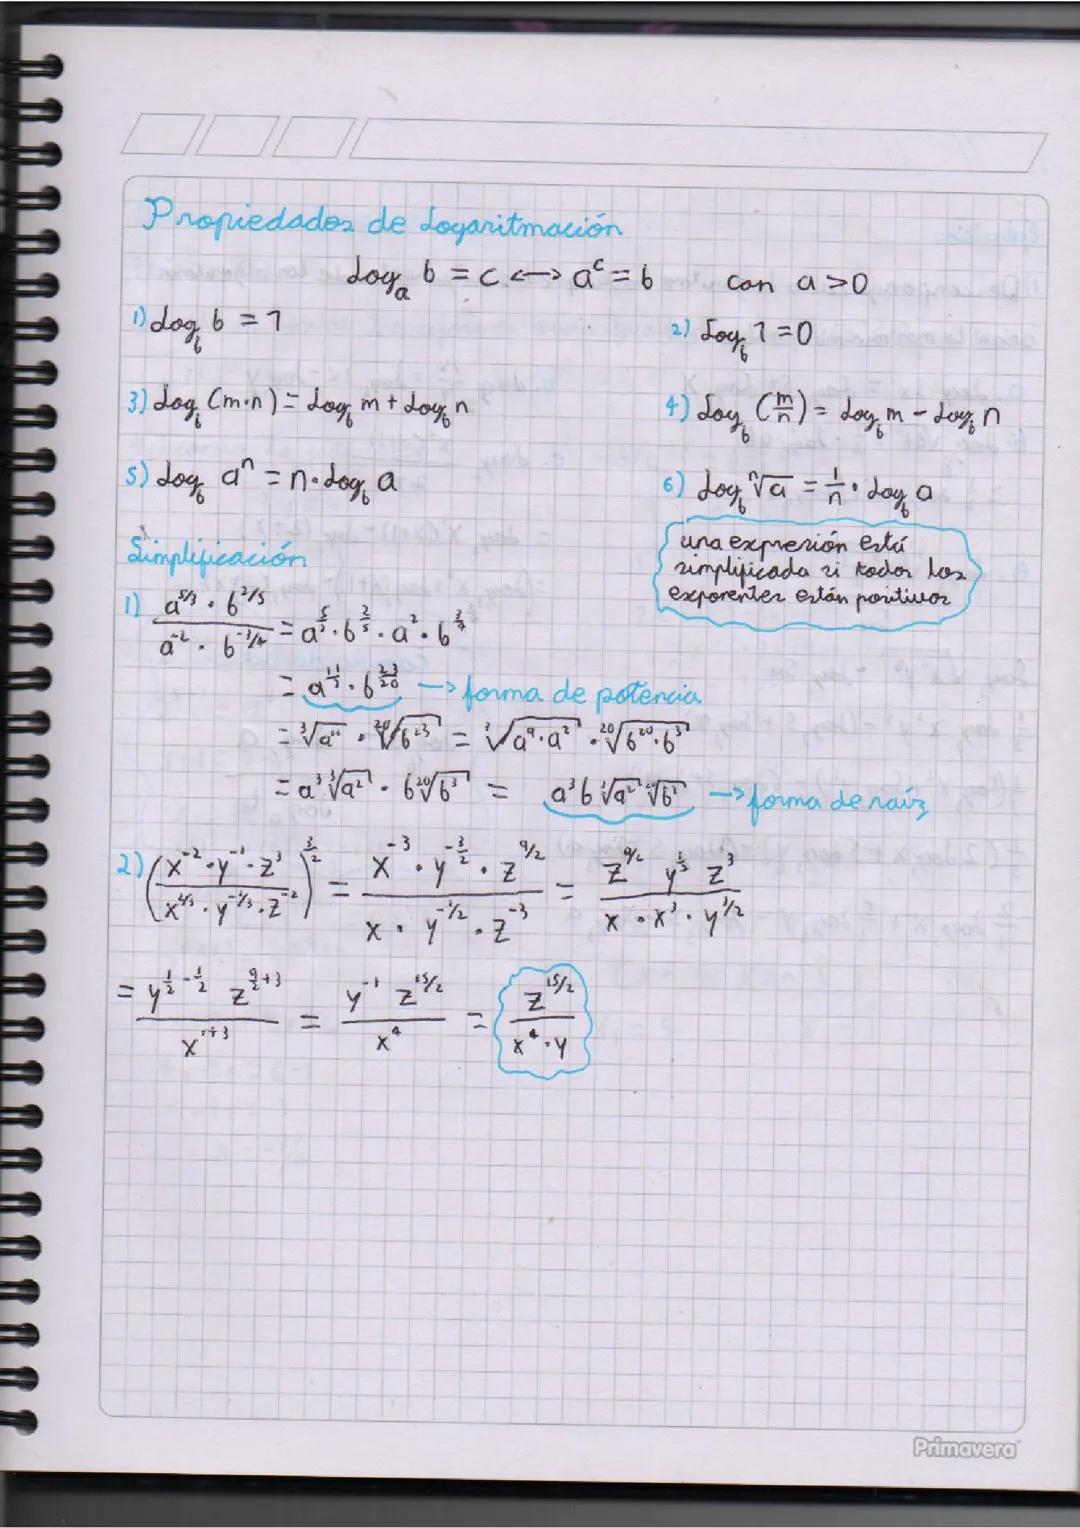 Propiedades de Logaritmación
Log_a b = c ⟷ a^c = b con a > 0
1) Log_b b = 1 2) Log_b 1 = 0
3) Log_b (m·n) = Log_b m + Log_b n 4) Log_b (m/n) = Log_b m - Log_b n
5) Log_b a^n = n·Log_b a 6) Log_b ⁿ√a = 1/n · Log_b a
una expresión está
simplificada si todos los
exponentes están positivos
Simplificación
1) (a^(5/3) · b^(2/5)) / (a^(-2) · b^(-3/4)) = a^(5/3) · b^(2/5) · a^2 · b^(3/4)
= a^(11/3) · b^(23/20) → forma de potencia
= ³√a^11 · ²⁰√b^23 = ³√(a^9·a^2) · ²⁰√(b^20·b^3)
= a^3 ³√a^2 · b ²⁰√b^3 = a^3 b ³√a^2 ²⁰√b^3 → forma de raíz
2) ((x^-2 · y^-1 · z^3) / (x^(2/3) · y^(-1/3) · z^-2))^(3/2) = (x^-3 · y^(-3/2) · z^(9/2)) / (x · y^(-1/2) · z^-3) = (z^(9/2) y^(1/2) z^3) / (x · x^3 · y^(3/2))
= (y^(1/2 - 3/2) z^(9/2+3)) / x^(1+3) = (y^-1 z^(15/2)) / x^4 = z^(15/2) / (x^4 · y)
Primavera